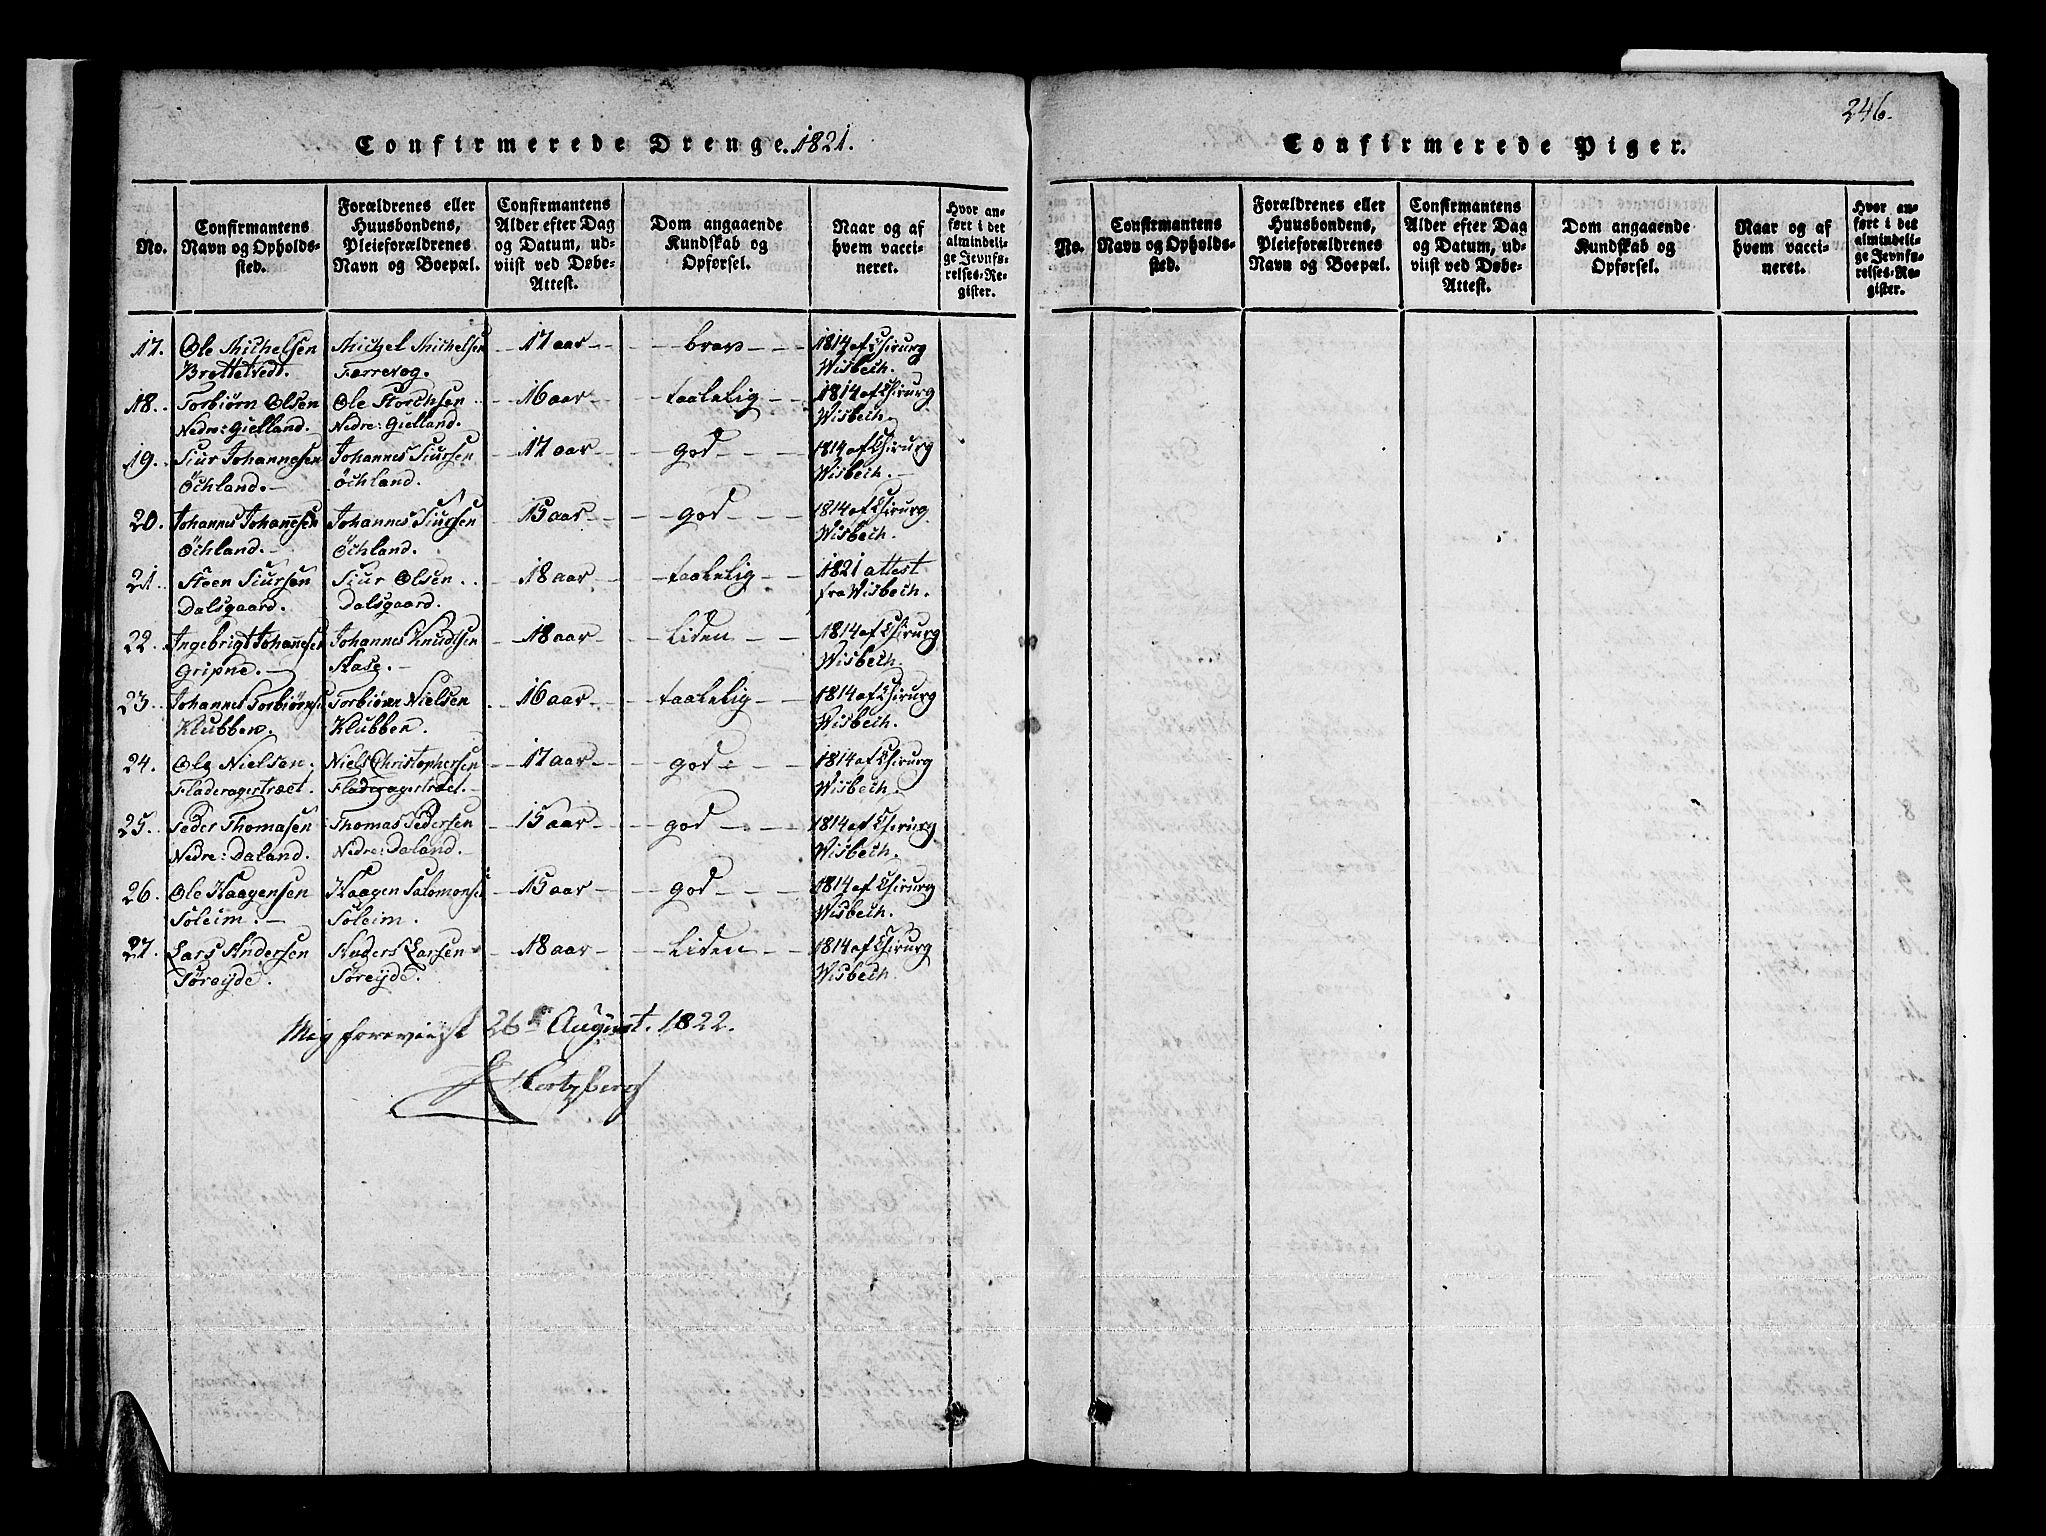 Confirmerede Drenge. 1821.
No.
Confirmantens Navn og Opholdssted.
Forældrenes eller Huusbondens, Pleieforældrenes Navn og Boepæl.
Confirmantens Alder efter Dag og Datum, udviist ved Døbe-Attest.
Dom angaaende Kundskab og Opførsel.
Naar og af hvem vaccineret.
Hvor anført i det almindelige Jevnførelses-Register.
17. Ole Michelsen Michel Michelsen 17 aar brav 1814 af Chirurg
Brattetvedt. Færrevog. Wisbech.
18. Torbiørn Olsen Ole Storchsen 16 aar taalelig 1814 af Chirurg
Nedre: Gielland. Nedre: Gielland. Wisbech.
19. Siur Johannesen Johannes Siursen 17 aar god 1814 af Chirurg
Öchland. Öchland. Wisbech.
20. Johannes Johannesen Johannes Siursen 15 aar god 1814 af Chirurg
Öchland. Öchland. Wisbech.
21. Steen Siursen Siur Olsen 18 aar taalelig 1821 attest
Dalsgaard. Dalsgaard. fra Wisbech.
22. Ingebrigt Johannesen Johannes Knudsen 18 aar Liden 1814 af Chirurg
Gripne. Aase. Wisbech.
23. Johannes Torbiørnsen Torbiørn Nielsen 16 aar taalelig 1814 af Chirurg
Klubben. Klubben. Wisbech.
24. Ole Nielsen Niels Christophersen 17 aar god 1814 af Chirurg
Fladeragertræet. Fladeragertræet. Wisbech.
25. Peder Thomasen Thomas Pedersen 15 aar god 1814 af Chirurg
Nedre: Daland. Nedre: Daland. Wisbech.
26. Ole Haagensen Haagen Salomonsen 15 aar god 1814 af Chirurg
Soleim. Soleim. Wisbech.
27. Lars Andersen Anders Larsen 18 aar Liden 1814 af Chirurg
Søreyde. Søreyde. Wisbech.
Mig foreviist 26de August. 1822.
Hertzberg
246.
Confirmerede Piger.
No.
Confirmantens Navn og Opholdssted.
Forældrenes eller Huusbondens, Pleieforældrenes Navn og Boepæl.
Confirmantens Alder efter Dag og Datum, udviist ved Døbe-Attest.
Dom angaaende Kundskab og Opførsel.
Naar og af hvem vaccineret.
Hvor anført i det almindelige Jevnførelses-Register.